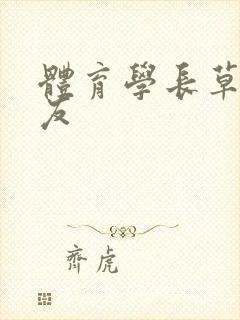 體育學長草
友
齊虎